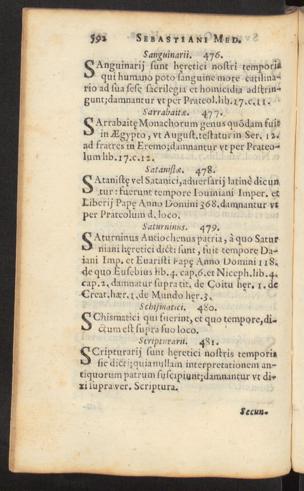 592 SEBASTIANI MED.
Sanguinarii. 476.
SAnguinarij sunt heretici nostri temporis
qui humano poto sanguine more catilina-
rio ad sua sese sacrilegia et homicidia adstrin-
gunt; damnantur vt per Prateol. lib. 17. c. 11.
Sarrabaitæ. 477.
SArrabaitę Monachorum genus quódam fuit
in Ægypto, vt August. testatur in Ser. 12.
ad fratres in Eremo; damnantur vt per Prateo-
lum lib. 17. c. 12.
Satanistæ. 478.
SAtanistę vel Satanici, aduersarij latinè dicun
tur: fuerunt tempore Iouiniani Imper. et
Liberij Papę Anno Domini 368. damnantur vt
per Prateolum d. loco.
Saturninus. 479.
SAturninus Antiochenus patria, à quo Satur
niani heretici dicti sunt, fuit tempore Da-
iani Imp. et Euaristi Papę Anno Domini 118.
de quo Eusebius lib. 4. cap. 6. et Niceph. lib. 4.
cap. 2. damnatur supra tit. de Coitu hęr. 1. de
Creat. hær. 1. de Mundo her. 3.
Schismatici. 480.
SChismatici qui fuerint, et quo tempore, di-
ctum est supra suo loco.
Scripturarii. 481.
SCripturarij sunt heretici nostris temporis
sic dicti; quia nullam interpretationem an-
tiquorum patrum suscipiunt; damnantur vt di-
xi supra ver. Scriptura.
Secun-